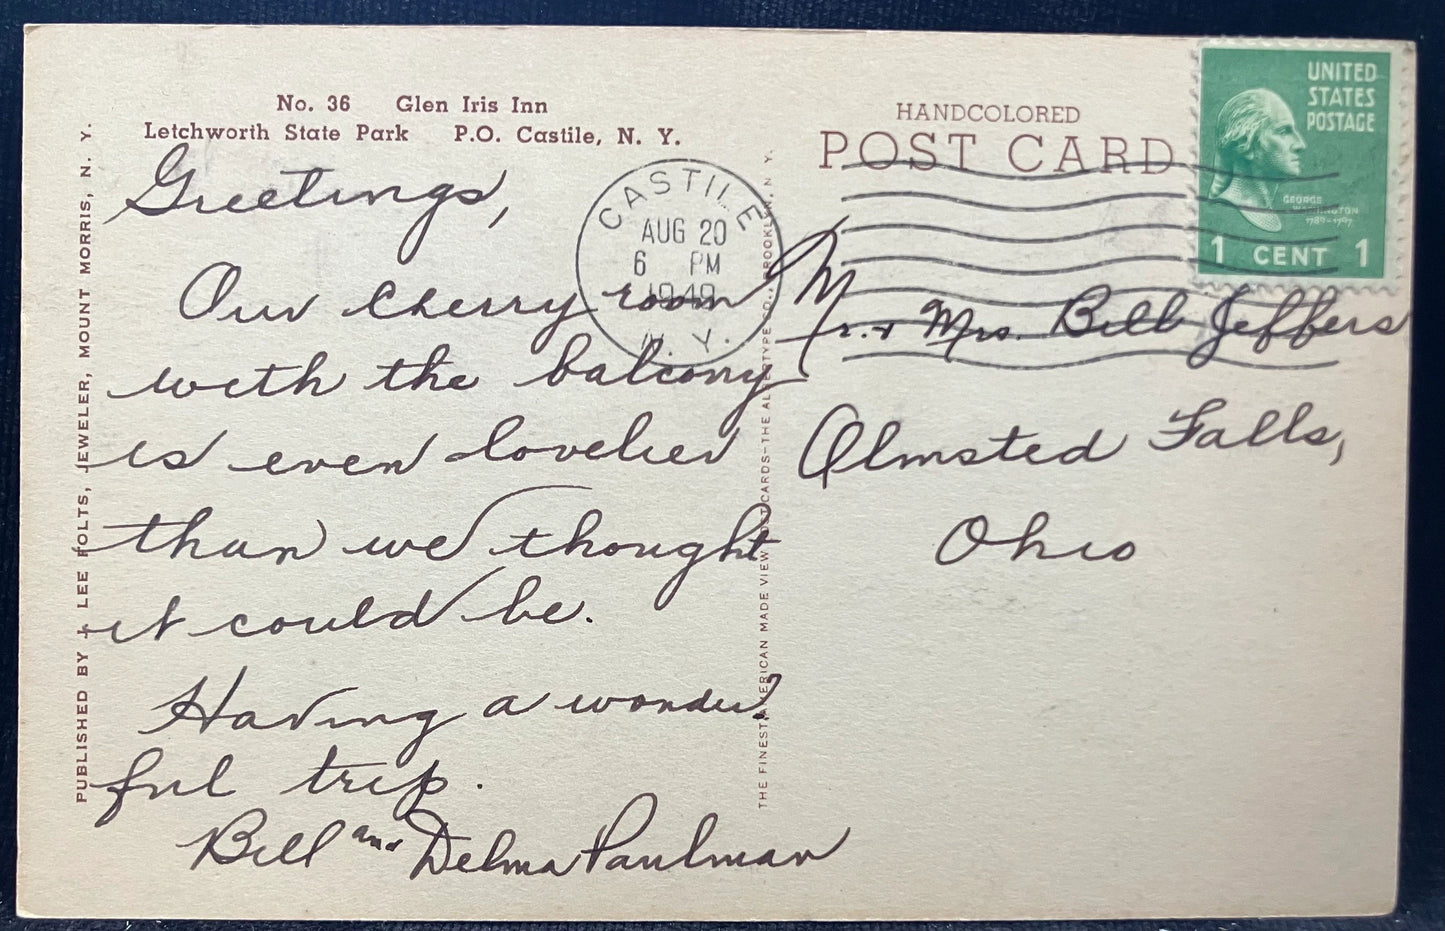 No. 36 Glen Iris Inn
Letchworth State Park P.O. Castile, N. Y.
Greetings,
Our cherry room
with the balcony
is even lovelier
than we thought
it could be.
Having a wonder-
ful trip.
Bill and Delma Paulman
PUBLISHED BY J. LEE FOLTS, JEWELER, MOUNT MORRIS, N. Y.
THE FINEST AMERICAN MADE VIEW POST CARDS—THE ALBERTYPE CO., BROOKLYN, N. Y.
HANDCOLORED
POST CARD
CASTILE
AUG 20
6 PM
1949
N. Y.
UNITED
STATES
POSTAGE
GEORGE
WASHINGTON
1789-1797
1 CENT 1
Mr. & Mrs. Bill Jeffers
Olmsted Falls,
Ohio